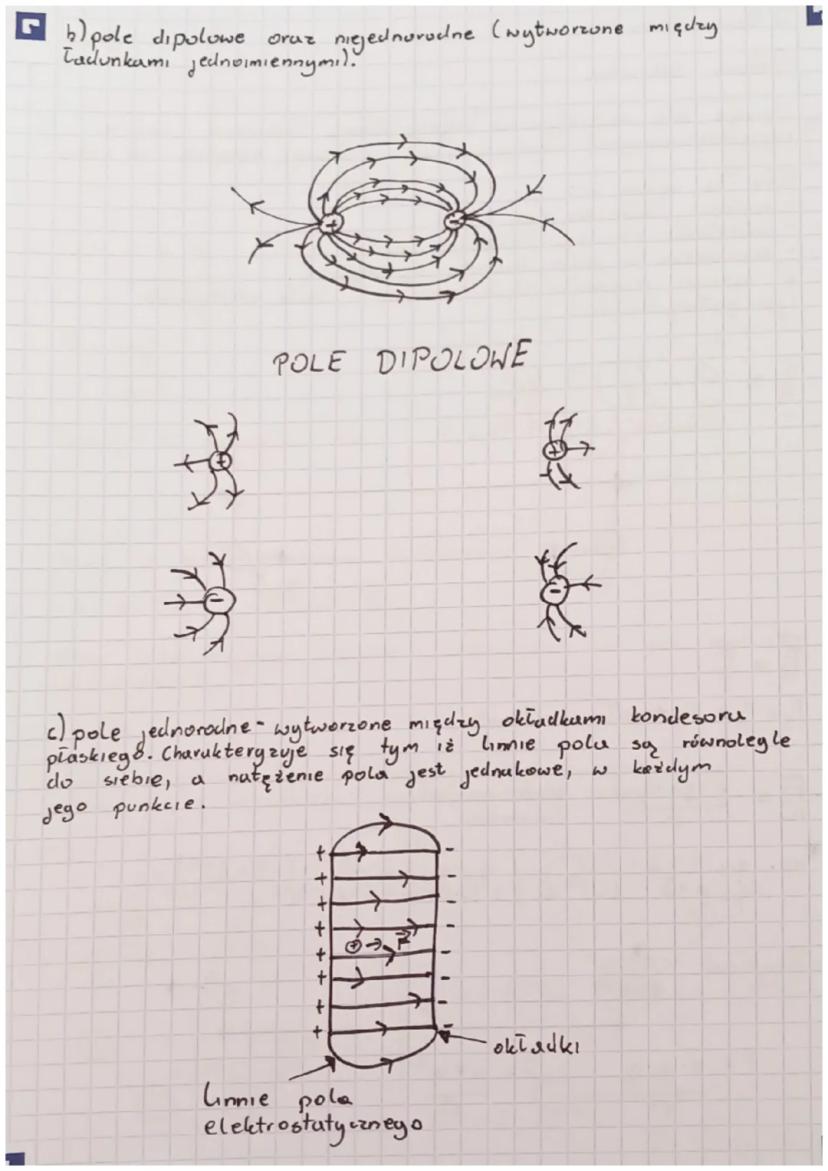 b) pole dipolowe oraz niejednorodne (wytworzone między
ładunkami jednoimiennymi).
+ -
POLE DIPOLOWE
+ +
- -
c) pole jednorodne - wytworzone między okładkami kondesoru
płaskiego. Charakteryzuje się tym iż linnie pola są równolegle
do siebie, a natężenie pola jest jednakowe, w każdym
jego punkcie.
+ -
+ -
+ -
+ -
+ → F
+ -
+ -
+ -
+ -
okładki
linnie pola
elektrostatycznego